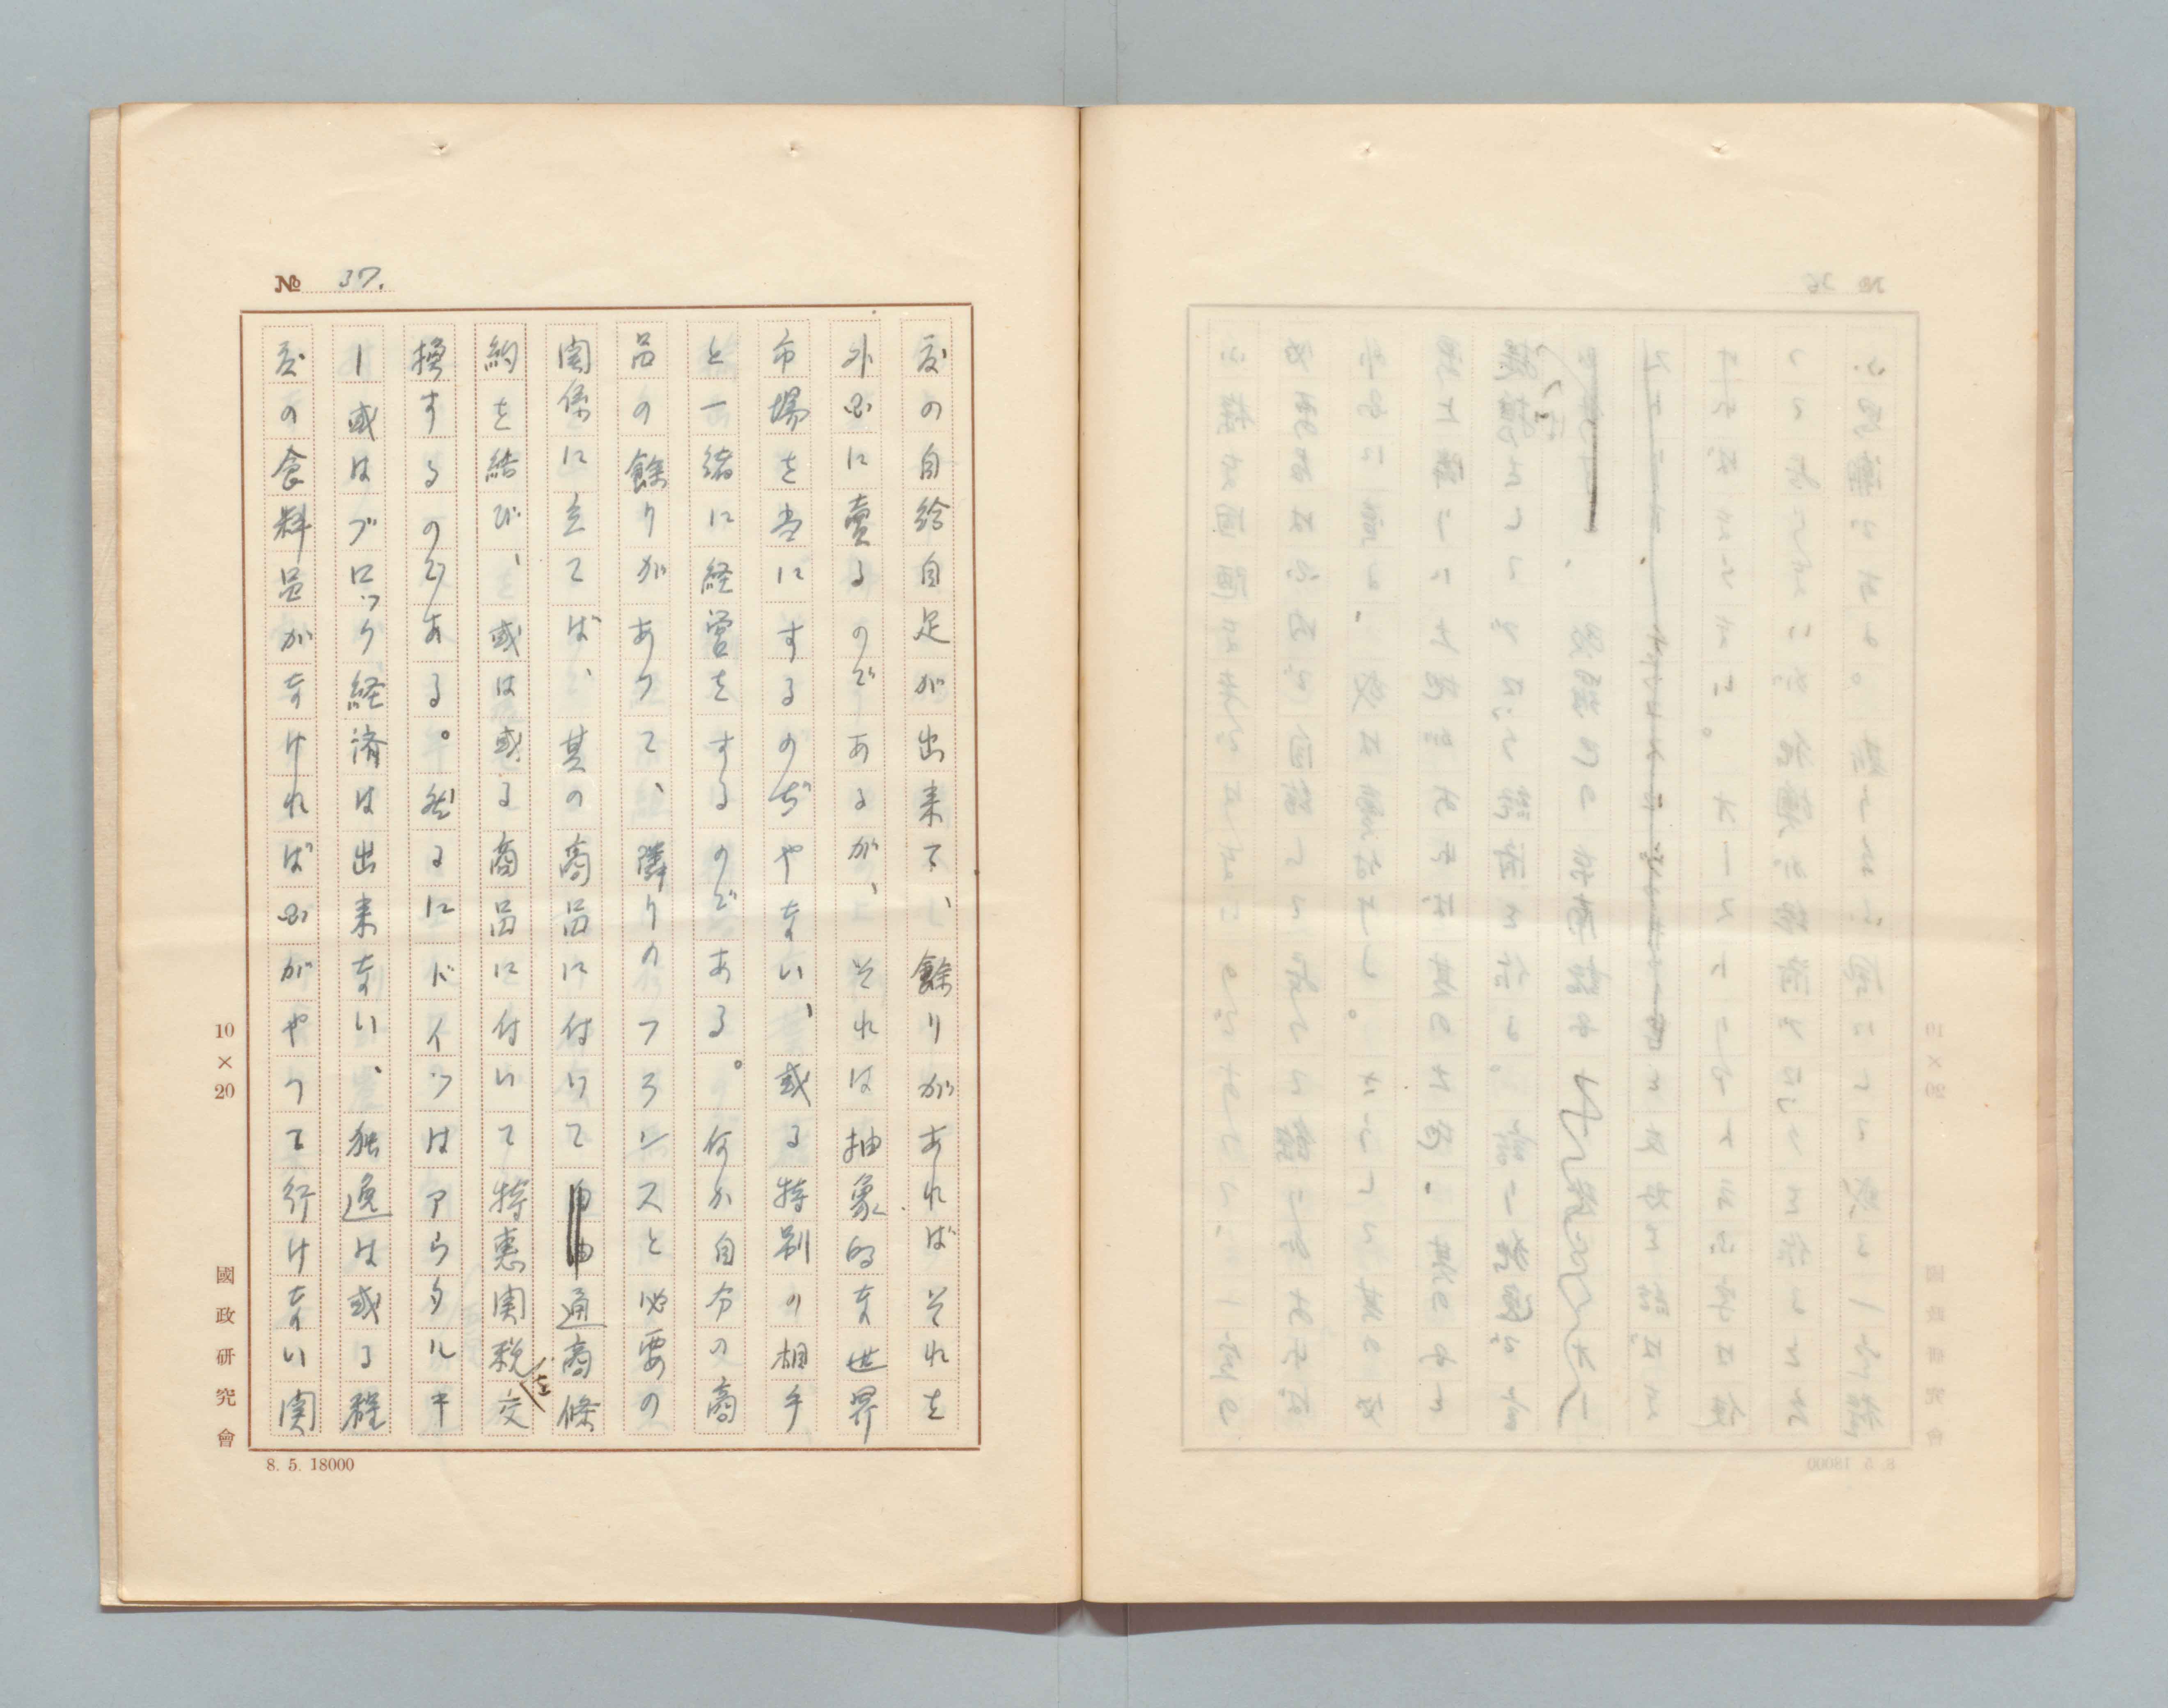 № 37.
度の自給自足が出来て、餘りがあればそれを
外国に賣るのであるが、それは抽象的な世界
市場を当にするのぢやない、或る特別の相手
と一緒に経営をするのである。何か自分の商
品の餘りがあつて、隣りのフランスと必要の
関係に立てば、其の商品に付いて通商條
約を結び、或は或る商品に付いて特恵関税を交
換するのである。然るにドイツはアウタルキ
ー或はブロック経済は出来ない、独逸は或る程
度の食料品がなければ国がやつて行けない関
10×20
國政研究會
8. 5. 18000